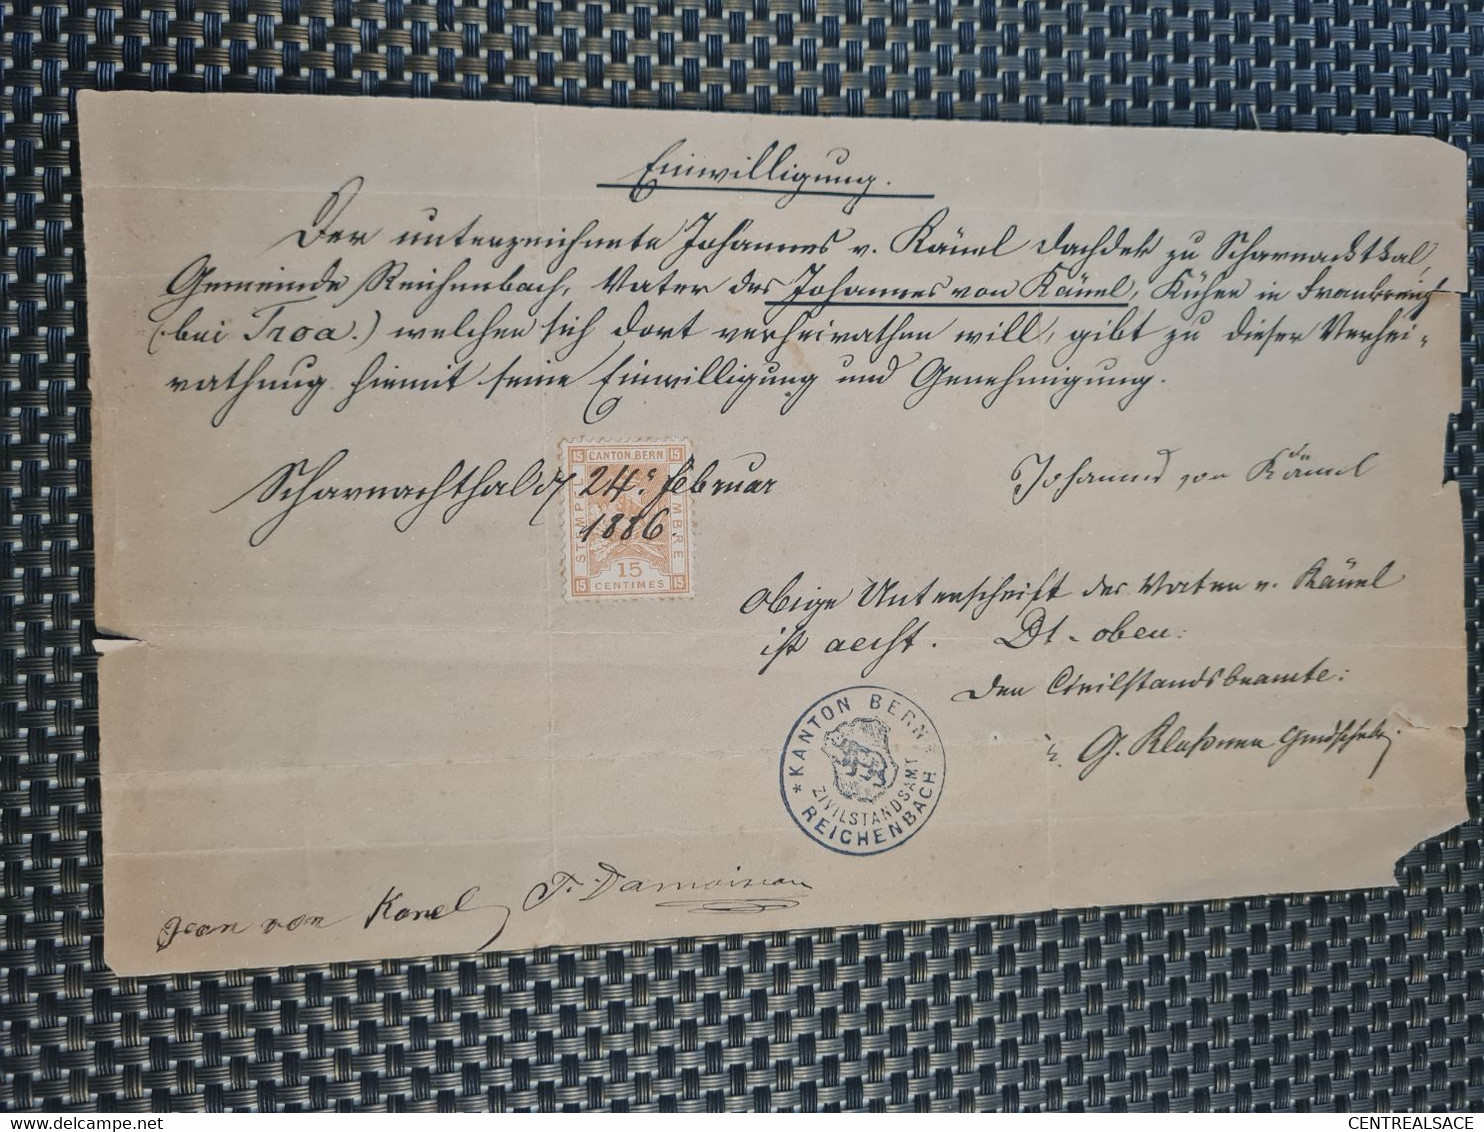 Einwilligung.
Der unterzeichnete Johannes v. Känel Dachdek zu Scharnachthal,
Gemeinde Reichenbach, Vater des Johannes von Känel, Küher in Frankreich
(bei Troa.) welcher sich dort verheirathen will, gibt zu dieser Verhei-
rathung hiemit seine Einwilligung und Genehmigung.
Scharnachthal d/ 24. Februar
1886.
15 CANTON BERN 15
STEMPEL
TIMBRE
15
15 CENTIMES 15
Johannes von Känel
Obige Unterschrift des Vaters v. Känel
ist aecht. Dt. oben:
Der Civilstandsbeamte:
G. Kloßner
* KANTON BERN *
ZIVILSTANDSAMT
REICHENBACH
Jean von Kanel
CENTREALSACE
delcampe.net